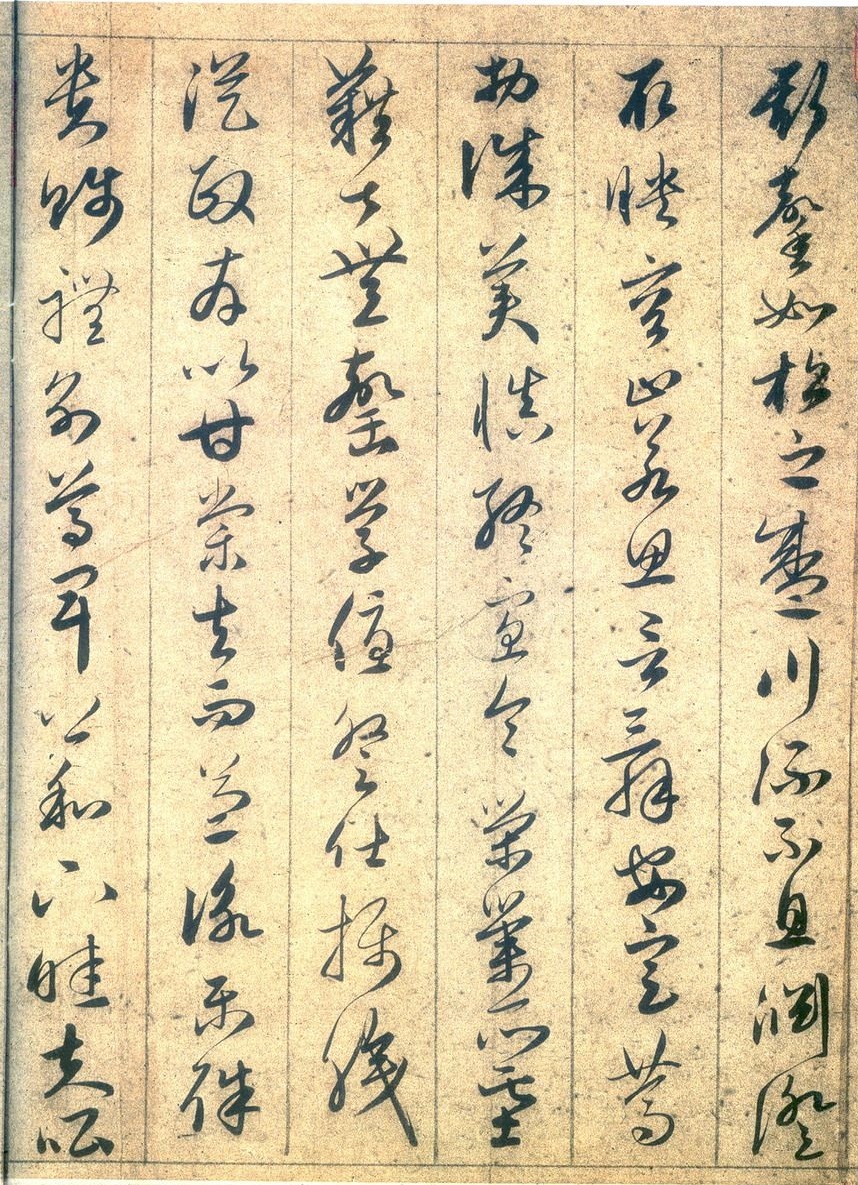 斯馨如松之盛川流不息淵澄
取映容止若思言辭安定篤
初誠美慎終宜令榮業所基
藉甚無罄學優登仕攝職
從政存以甘棠去而益詠樂殊
貴賤禮別尊卑上和下睦夫唱